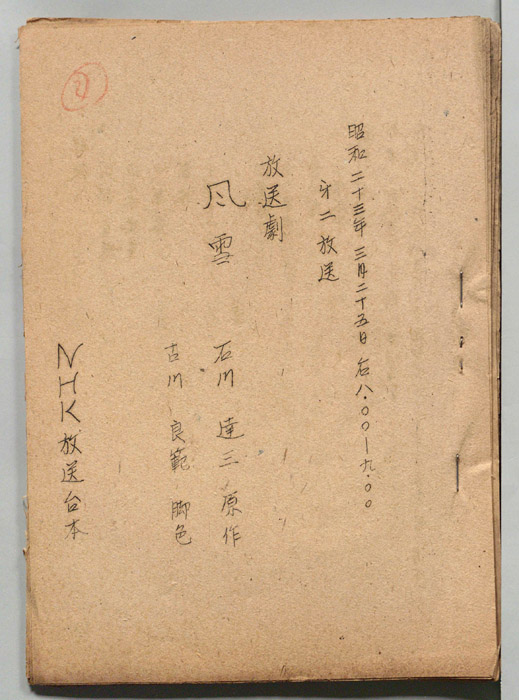 昭和二十三年三月二十五日 后八.〇〇―九.〇〇
才二放送
放送劇
风雪
石川達三 原作
古川良範 脚色
NHK放送台本